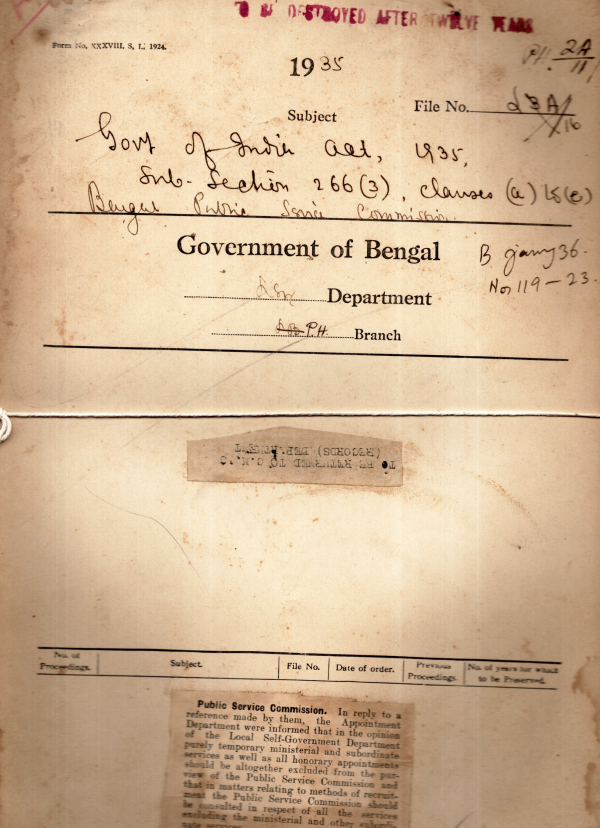 TO BE DESTROYED AFTER TWELVE YEARS
Form No. XXXVIII, S. I., 1924.
PH. 2A/11
1935
File No.
Subject
Govt of India Act, 1935,
Sub-Section 266(3), clauses (a) to (c)
Bengal Public Service Commission.
Government of Bengal
B Jany 36.
Nos 119-23.
Department
P.H. Branch
TO BE RETURNED TO
(RECORDS) DEPARTMENT
No. of Proceedings. Subject. File No. Date of order. Previous Proceedings. No. of years for which to be Preserved.
Public Service Commission. In reply to a
reference made by them, the Appointment
Department were informed that in the opinion
of the Local Self-Government Department
purely temporary ministerial and subordinate
services as well as all honorary appointments
should be altogether excluded from the pur-
view of the Public Service Commission and
that in matters relating to methods of recruit-
ment the Public Service Commission should
be consulted in respect of all the services
excluding the ministerial and other subordi-
nate services.